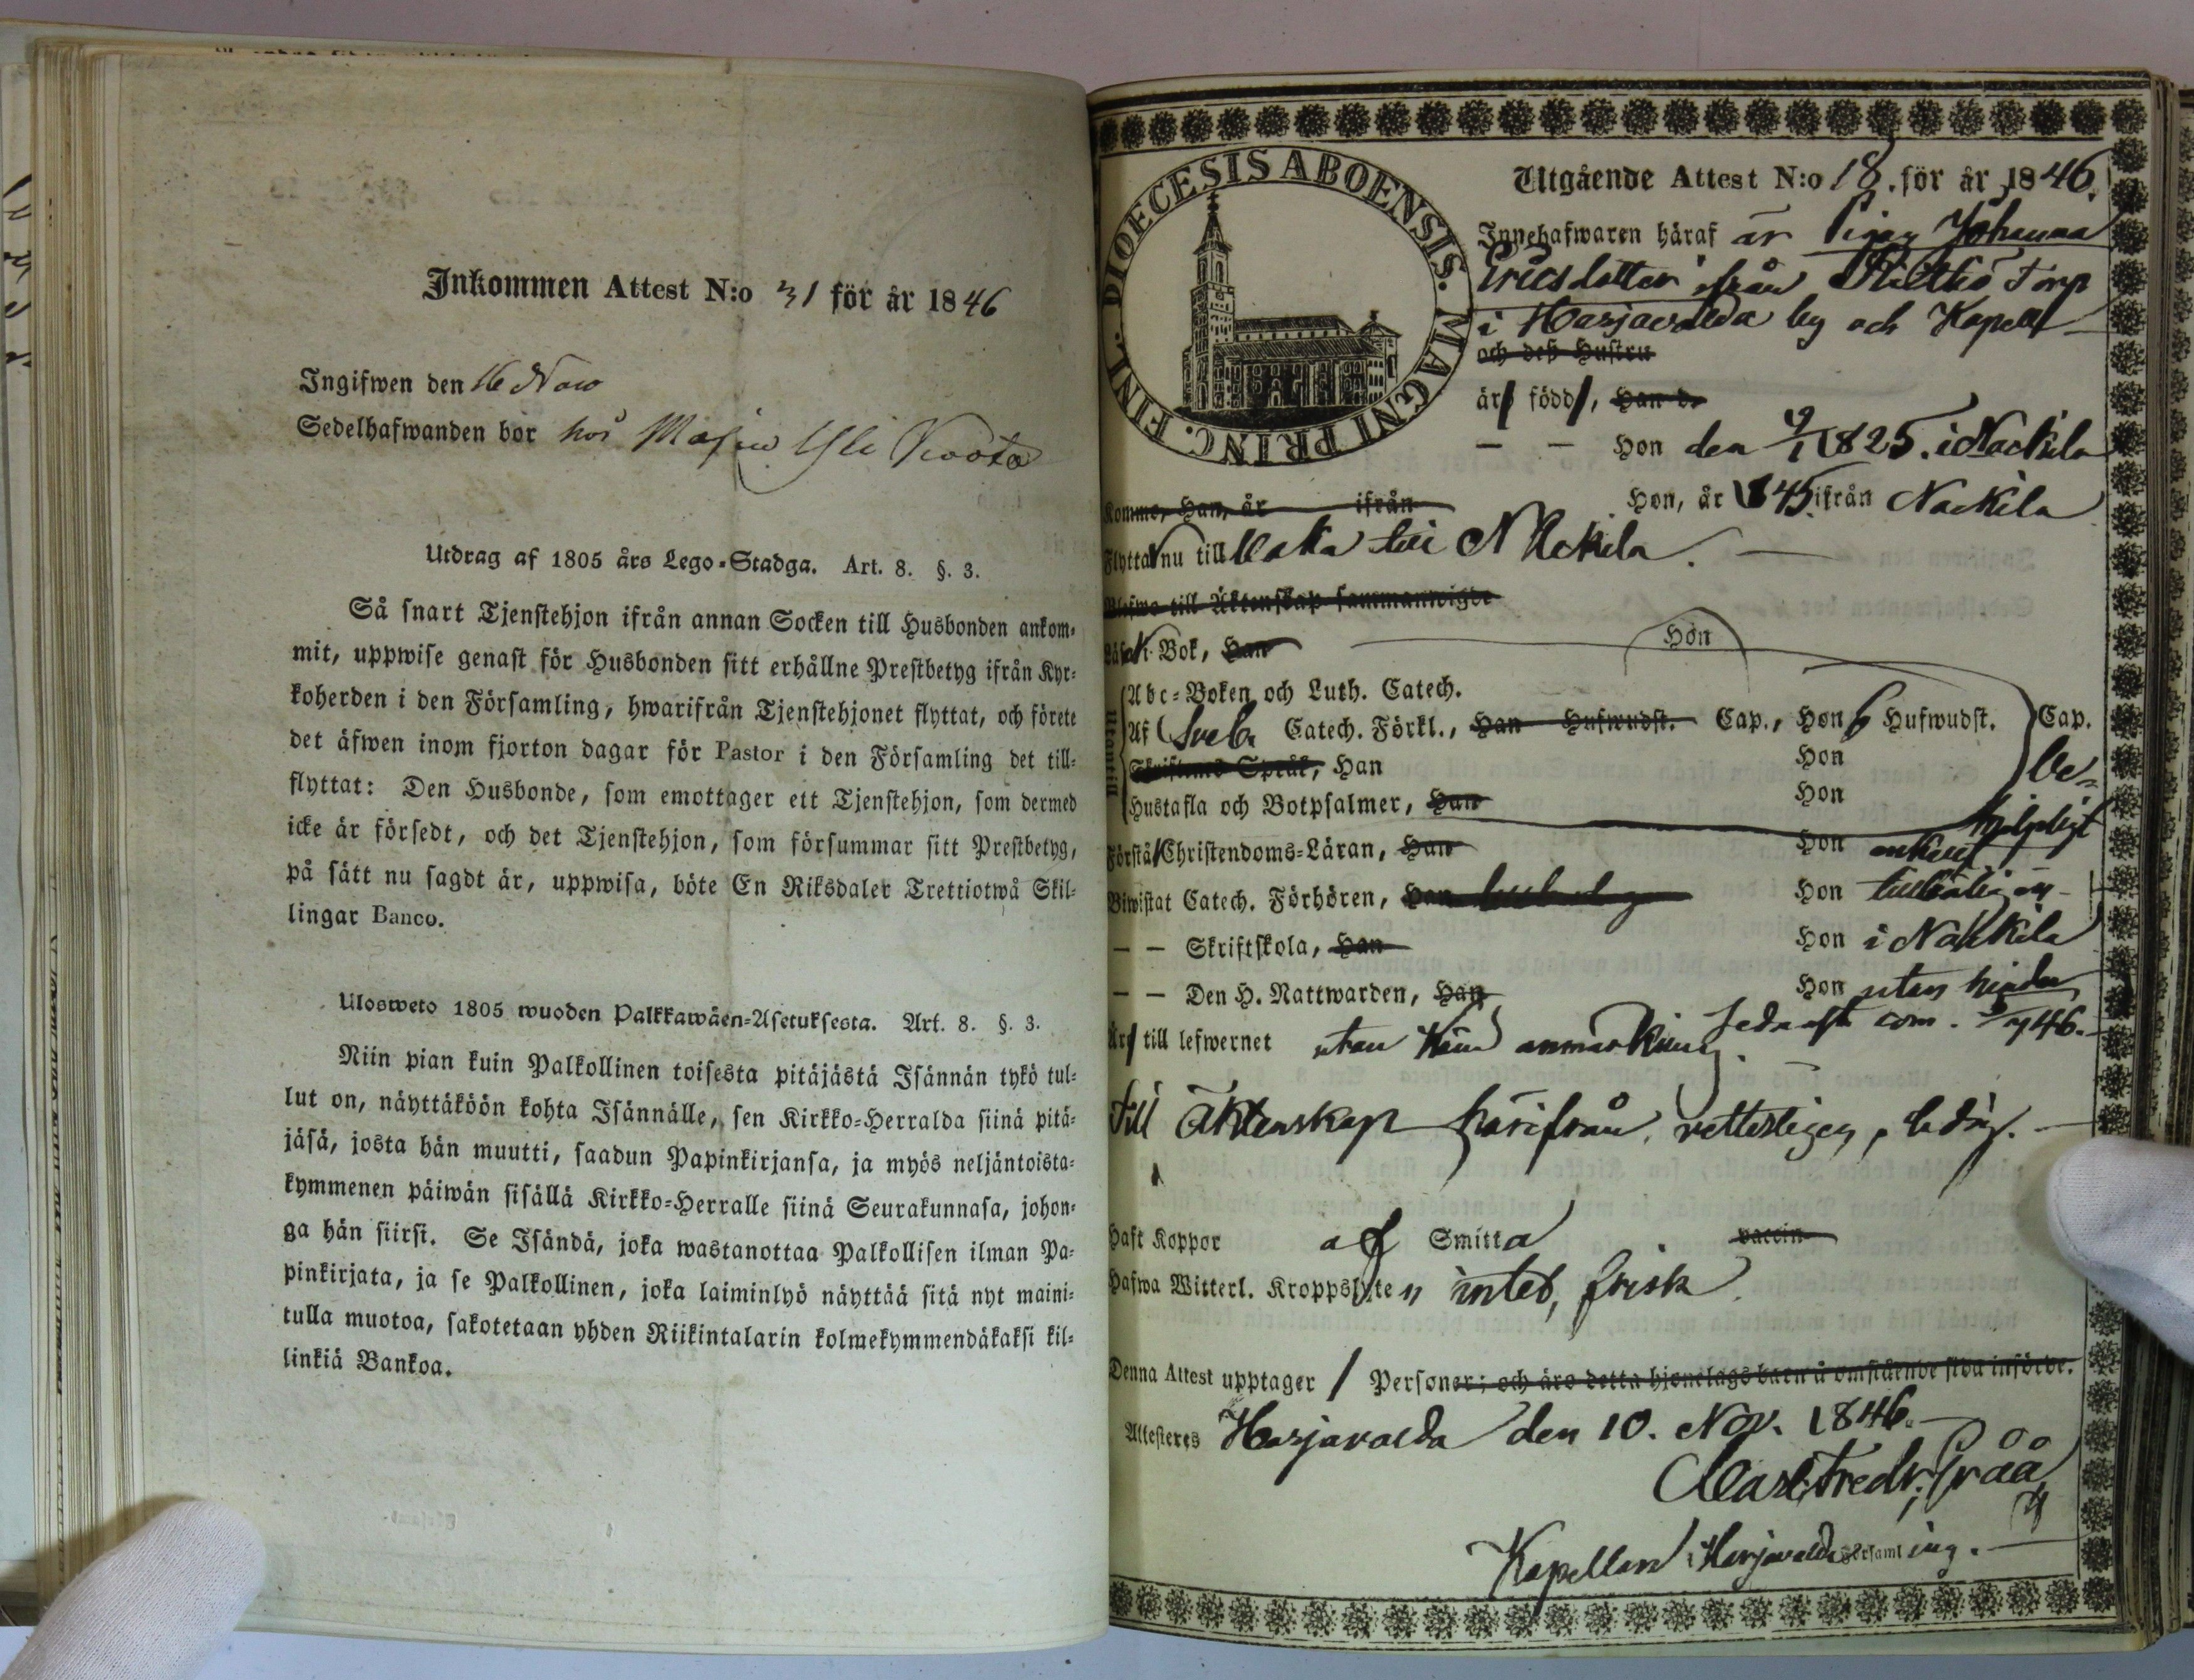 Inkommen Attest N:o 31 för år 1846
Ingifwen den 16 Nov
Sedelhafwanden bor hos
Utdrag af 1805 års Lego-Stadga. Art. 8. §. 3.
Så snart Tjenstehjon ifrån annan Socken till Husbonden ankom-
mit, uppwise genast för Husbonden sitt erhållne Prestbetyg ifrån Kyr-
koherden i den Församling, hwarifrån Tjenstehjonet flyttat, och förete
det äfwen inom fjorton dagar för Pastor i den Församling det till-
flyttat: Den Husbonde, som emottager ett Tjenstehjon, som dermed
icke är försedt, och det Tjenstehjon, som försummar sitt Prestbetyg,
på sätt nu sagdt är, uppwisa, böte En Riksdaler Trettiotwå Skil-
lingar Banco.
Ulosweto 1805 wuoden Palkkawäen-Asetuksesta. Art. 8. §. 3.
Niin pian kuin Palkollinen toisesta pitäjästä Isännän tykö tul-
lut on, näyttäköön kohta Isännälle, sen Kirkko-Herralda siinä pitä-
jäsä, josta hän muutti, saadun Papinkirjansa, ja myös neljäntoista-
kymmenen päiwän sisällä Kirkko-Herralle siinä Seurakunnasa, johon-
ga hän siirsi. Se Isändä, joka wastanottaa Palkollisen ilman Pa-
pinkirjata, ja se Palkollinen, joka laiminlyö näyttää sitä nyt maini-
tulla muotoa, sakotetaan yhden Riikintalarin kolmekymmendäkaksi kil-
linkiä Bankoa.
DIOECESIS ABOENSIS. MAGNI PRINC. FINL.
Utgående Attest N:o 18. för år 1846.
Innehafwaren häraf är Pigan Johanna
Ericsdotter ifrån Torp
i Harjavalda by och Kapell
och deß Hustru
är född, Han d.
— — Hon den 9/1 1825. i Nackila
Komme, Han, år ifrån Hon, år 1845 ifrån Nackila
Flyttar nu till till Nackila.
Blefwo till Äktenskap sammanwigde
Läsa i Bok, Han Hon
Utantill
Abc-Boken och Luth. Catech.
Af Sveb. Catech. Förkl., Han Hufwudst. Cap., Hon 6 Hufwudst. Cap.
Skriftens Språk, Han Hon be-
Hustafla och Botpsalmer, Han Hon hjelpligt
Förstå Christendoms-Läran, Han Hon enkelt
Biwistat Catech. Förhören, Han Hon
— — Skriftskola, Han Hon i Nackila
— — Den H. Nattwarden, Han Hon utan hinder
sednast com. 5/7 46.
Är till lefwernet utan känd anmärkning.
Till äktenskap härifrån, vetterligen, ledig.
Haft Koppor af Smitta vaccin
Hafwa Witterl. Kroppslyten intet, frisk.
Denna Attest upptager 1 Personer; och äro detta hjonelags barn å omstående sida införde.
Attesteres Harjavalda den 10. Nov. 1846.
Carl Fredr. Gråå
Kapellan i Harjavalda Församling.